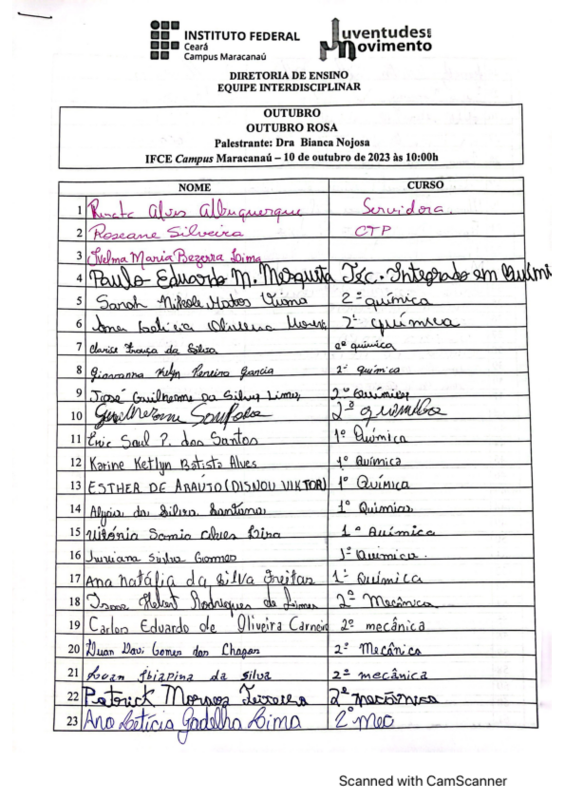 INSTITUTO FEDERAL
Ceará
Campus Maracanaú
Juventudes em
Movimento
DIRETORIA DE ENSINO
EQUIPE INTERDISCIPLINAR
OUTUBRO
OUTUBRO ROSA
Palestrante: Dra Bianca Nojosa
IFCE Campus Maracanaú – 10 de outubro de 2023 às 10:00h
NOME CURSO
1 Renata Alves Albuquerque Servidora.
2 Roseane Silveira CTP
3 Maria Bezerra Lima
4 Paulo Eduardo M. Mesquita Téc. Integrado em Quími
5 Sarah Nikole Matos Viana 2º química
6 Ana Oliveira 2º química
7 Clarice França da Silva química
8 Giovanna Kelyn Pereira Garcia 2º Química
9 José Guilherme da Silva Lima 2º Química
10 Guilherme 2º química
11 Eric Saul P. dos Santos 1º Química
12 Karine Ketlyn Batista Alves 1º Química
13 ESTHER DE ARAÚJO (DISNOU VIKTOR) 1º Química
14 da Silva Santana 1º Química
15 Alves Lira 1º Química
16 Juliana Silva Gomes 1º Química.
17 Ana natália da Silva Freitas 1º Química
18 Rodrigues de 2º Mecânica
19 Carlos Eduardo de Oliveira Carneiro 2º mecânica
20 Davi Gomes das Chagas 2º Mecânica
21 Ibiapina da Silva 2º mecânica
22 Patrick Moraes Teixeira 2º mecânica
23 Ana Letícia Gadelha Lima 2º Mec
Scanned with CamScanner